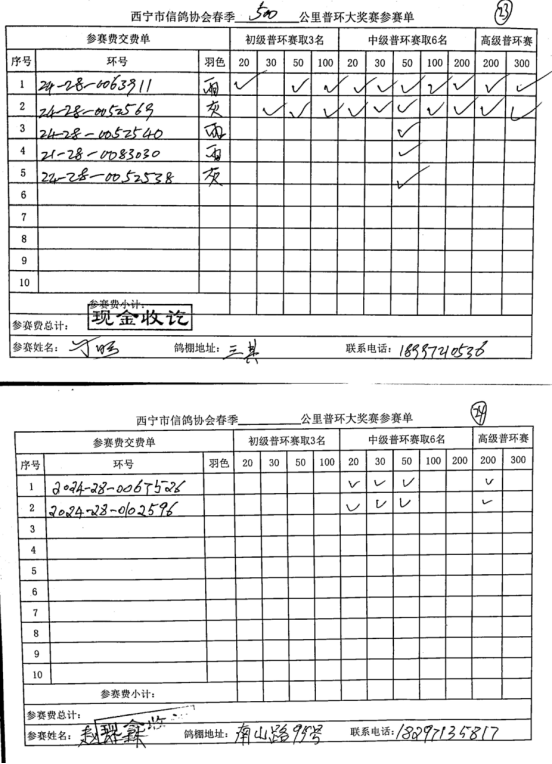 西宁市信鸽协会春季 500 公里普环大奖赛参赛单 23
参赛费交费单 初级普环赛取3名 中级普环赛取6名 高级普环赛
序号 环号 羽色 20 30 50 100 20 30 50 100 200 200 300
1 24-28-0063911 雨 ✓ ✓ ✓ ✓ ✓ ✓ ✓ ✓ ✓ ✓
2 24-28-0052569 灰 ✓ ✓ ✓ ✓ ✓ ✓ ✓ ✓ ✓ ✓
3 24-28-0052540 雨 ✓
4 21-28-0083030 雨 ✓
5 22-28-0052538 灰 ✓
6
7
8
9
10
参赛费小计:
参赛费总计: 现金收讫
参赛姓名: 鸽棚地址: 三其 联系电话: 18997210536
西宁市信鸽协会春季 公里普环大奖赛参赛单 24
参赛费交费单 初级普环赛取3名 中级普环赛取6名 高级普环赛
序号 环号 羽色 20 30 50 100 20 30 50 100 200 200 300
1 2024-28-0067526 ✓ ✓ ✓ ✓
2 2024-28-0102596 ✓ ✓ ✓ ✓
3
4
5
6
7
8
9
10
参赛费小计:
参赛费总计:
参赛姓名: 鸽棚地址: 南山路95号 联系电话: 18297135817